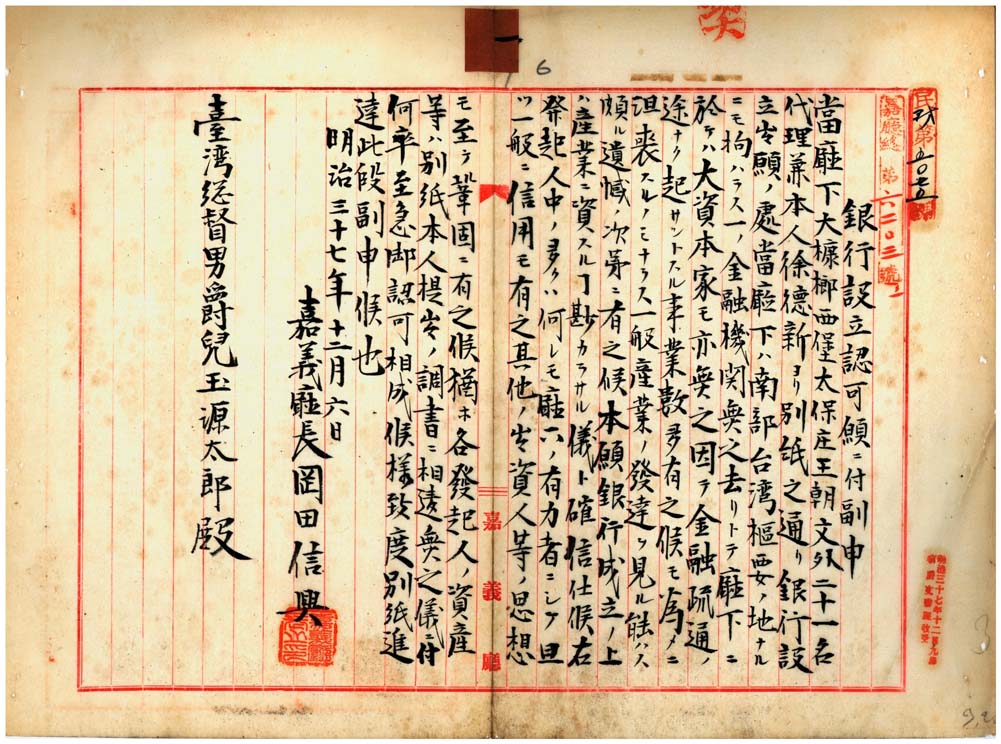 民政第五〇七五
嘉廳總第六二〇三號ノ一
銀行設立認可願ニ付副申
當廳下大槺榔西堡太保庄王朝文外二十一名
代理兼本人徐德新ヨリ別紙之通リ銀行設
立出願ノ處當廳下ハ南部台湾樞要ノ地ナル
ニモ拘ハラス一ノ金融機関無之去リトテ廳下ニ
於テハ大資本家モ亦無之因テ金融疏通ノ
途ナク起サントスル事業數多有之候モ為メニ
沮喪スルノミナラス一般産業ノ發達ヲ見ル能ハス
頗ル遺憾ノ次第ニ有之候本願銀行成立ノ上
ハ産業ニ資スルヿ尠カラサル儀ト確信仕候右
発起人中ノ多クハ何レモ廳下ノ有力者ニシテ且
ツ一般ニ信用モ有之其他ノ出資人等ノ思想
モ至テ鞏固ニ有之候猶ホ各發起人ノ資産
等ハ別紙本人提出ノ調書ニ相違無之儀ニ付
何卒至急御認可相成候様致度別紙進
達此段副申候也
明治三十七年十二月六日
嘉義廳長岡田信興
臺湾総督男爵兒玉源太郎殿
嘉義廳
明治三十七年十二月九日
一
6